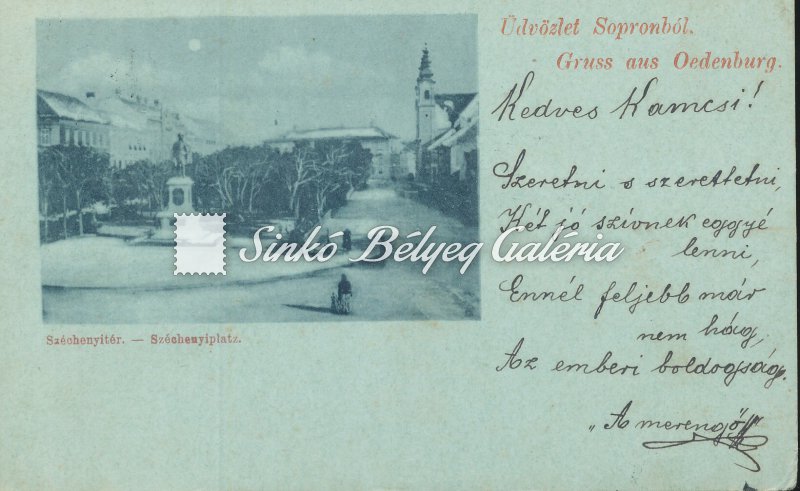 Üdvözlet Sopronból.
Gruss aus Oedenburg.
Kedves Kamcsi!
Szeretni s szerettetni,
Két jó szívnek eggyé
lenni,
Ennél feljebb már
nem hág,
Az emberi boldogság.
„A merengő"
Széchenyitér. — Széchenyiplatz.
Sinkó Bélyeg Galéria